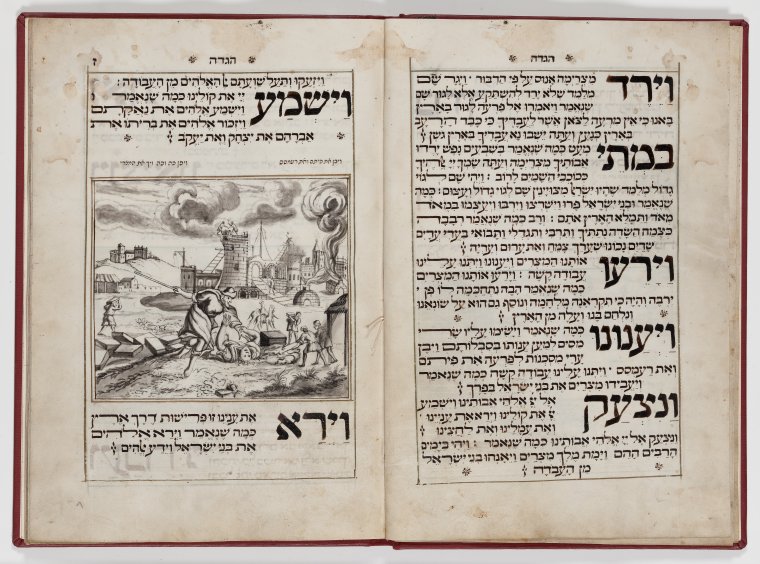 הגדה
וירד מצרימה אנוס על פי הדבור : ויגר שם
מלמד שלא ירד להשתקע אלא לגור שם
שנאמר ויאמרו אל פרעה לגור בארץ
באנו כי אין מרעה לצאן אשר לעבדיך כי כבד הרעב
בארץ כנען ועתה ישבו נא עבדיך בארץ גשן
במתי מעט כמה שנאמר בשבעים נפש ירדו
אבותיך מצרימה ועתה שמך יי אלהיך
ככוכבי השמים לרוב : ויהי שם לגוי
גדול מלמד שהיו ישראל מצויינין שם לגוי גדול ועצום : כמה
שנאמר ובני ישראל פרו וישרצו וירבו ויעצמו במאד
מאד ותמלא הארץ אתם : ורב כמה שנאמר רבבה
כצמח השדה נתתיך ותרבי ותגדלי ותבואי בעדי עדים
שדים נכונו שערך צמח ואת ערום ועריה
וירעו אותנו המצרים ויענונו ויתנו עלינו
עבודה קשה : וירעו אותנו המצרים
כמה שנאמר הבה נתחכמה לו פן
ירבה והיה כי תקראנה מלחמה ונוסף גם הוא על שונאנו
ונלחם בנו ועלה מן הארץ
ויענונו כמה שנאמר וישימו עליו שרי
מסים למען ענותו בסבלותם ויבן
ערי מסכנות לפרעה את פיתם
ואת רעמסס : ויתנו עלינו עבודה קשה כמה שנאמר
ויעבידו מצרים את בני ישראל בפרך
ונצעק אל יי אלהי אבותינו וישמע
יי את קולינו וירא את ענינו
ואת עמלינו ואת לחצינו
ונצעק אל יי אלהי אבותינו כמה שנאמר : ויהי בימים
הרבים ההם וימת מלך מצרים ויאנחו בני ישראל
מן העבדה
הגדה
ויזעקו ותעל שועתם אל האלהים מן העבודה :
וישמע יי את קולינו כמה שנאמר
וישמע אלהים את נאקתם
ויזכור אלהים את בריתו את
אברהם את יצחק ואת יעקב
ויבן את פיתם ואת רעמסס
ויפן כה וכה ויך את המצרי
וירא את ענינו זו פרישות דרך ארץ
כמה שנאמר וירא אלהים
את בני ישראל וידע אלהים